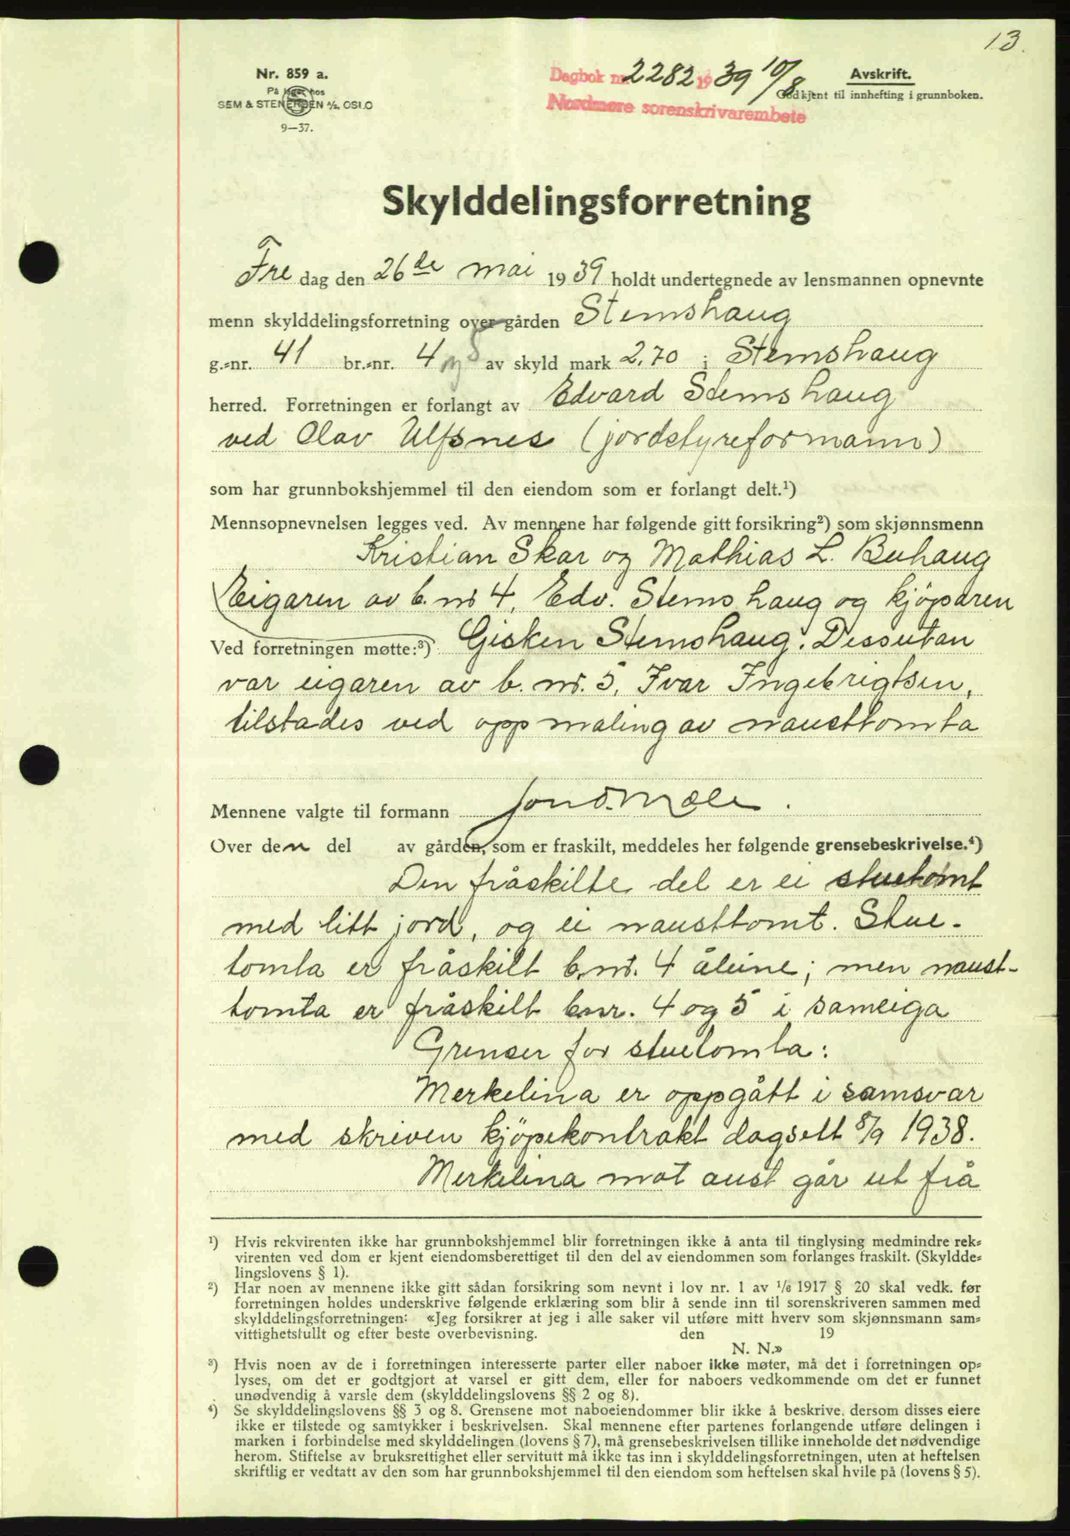 13.
Nr. 859 a.
På lager hos
SEM & STENERSEN A/S, OSLO
9-37.
Dagbok nr. 2282 1939 10/8
Nordmøre sorenskrivarembete
Avskrift.
Godkjent til innhefting i grunnboken.
Skylddelingsforretning
Fre dag den 26de mai 1939 holdt undertegnede av lensmannen opnevnte
menn skylddelingsforretning over gården Stemshaug
g.-nr. 41 br.-nr. 4 og 5 av skyld mark 2,70 i Stemshaug
herred. Forretningen er forlangt av Edvard Stemshaug
ved Olav Ulfsnes (jordstyreformann)
som har grunnbokshjemmel til den eiendom som er forlangt delt.¹)
Mennsopnevnelsen legges ved. Av mennene har følgende gitt forsikring²) som skjønnsmenn
Kristian Skar og Mathias L. Buhaug
Eigaren av b.nr 4, Edv. Stemshaug og kjöparen
Ved forretningen møtte:³) Gisken Stemshaug. Dessutan
var eigaren av b.nr. 5, Ivar Ingebrigtsen,
tilstades ved oppmaling av nausttomta
Mennene valgte til formann Jon O. Mæle.
Over den del av gården, som er fraskilt, meddeles her følgende grensebeskrivelse.⁴)
Den fråskilte del er ei stuetomt
med litt jord, og ei nausttomt. Stue-
tomta er fråskilt b.nr. 4 åleine; men naust-
tomta er fråskilt bnr. 4 og 5 i sameiga
Grenser for stuetomta:
Merkelina er oppgått i samsvar
med skriven kjöpekontrakt dagsett 8/9 1938.
Merkelina mot aust går ut frå
¹) Hvis rekvirenten ikke har grunnbokshjemmel blir forretningen ikke å anta til tinglysing medmindre rek-
virenten ved dom er kjent eiendomsberettiget til den del av eiendommen som forlanges fraskilt. (Skyldde-
lingslovens § 1).
²) Har noen av mennene ikke gitt sådan forsikring som nevnt i lov nr. 1 av 1/6 1917 § 20 skal vedk. før
forretningen holdes underskrive følgende erklæring som blir å sende inn til sorenskriveren sammen med
skylddelingsforretningen: «Jeg forsikrer at jeg i alle saker vil utføre mitt hverv som skjønnsmann sam-
vittighetsfullt og efter beste overbevisning. den 19
N. N.»
³) Hvis noen av de i forretningen interesserte parter eller naboer ikke møter, må det i forretningen op-
lyses, om det er godtgjort at varsel er gitt dem, eller for naboers vedkommende om det er funnet
unødvendig å varsle dem (skylddelingslovens §§ 2 og 8).
⁴) Se skylddelingslovens §§ 3 og 8. Grensene mot naboeiendommer blir ikke å beskrive, dersom disses eiere
ikke er tilstede og samtykker i beskrivelsen. Skal mennene efter partenes forlangende utføre delingen i
marken i forbindelse med skylddelingen (lovens § 7), må grensebeskrivelsen tillike inneholde det nødvendige
herom. Stiftelse av bruksrettighet eller servitutt må ikke tas inn i skylddelingsforretningen, uten at heftelsen
skriftlig er vedtatt av den som har grunnbokshjemmel til den eiendom som heftelsen skal hvile på (lovens § 5).